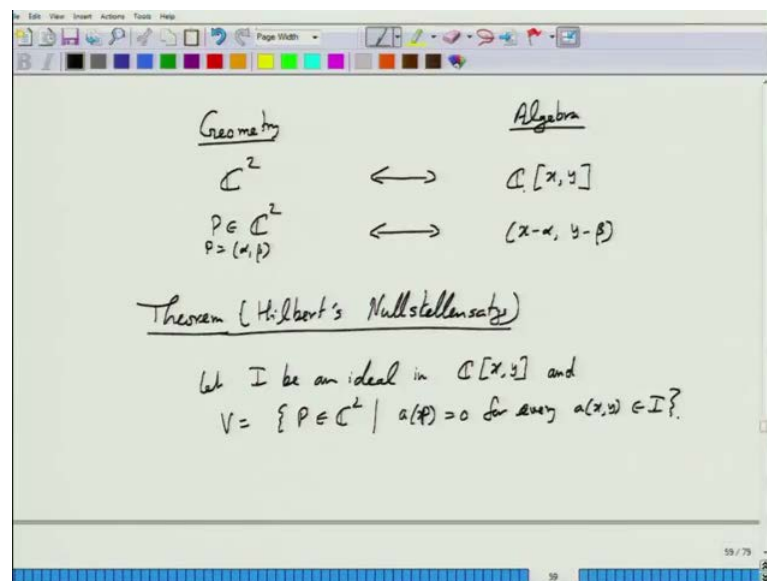 File Edit View Insert Actions Tools Help
Page Width
Geometry Algebra
ℂ² ⟷ ℂ[x, y]
P ∈ ℂ² ⟷ (x-α, y-β)
P = (α, β)
Theorem (Hilbert's Nullstellensatz)
Let I be an ideal in ℂ[x, y] and
V = { P ∈ ℂ² | a(P) = 0 for every a(x, y) ∈ I }.
59 / 79
59